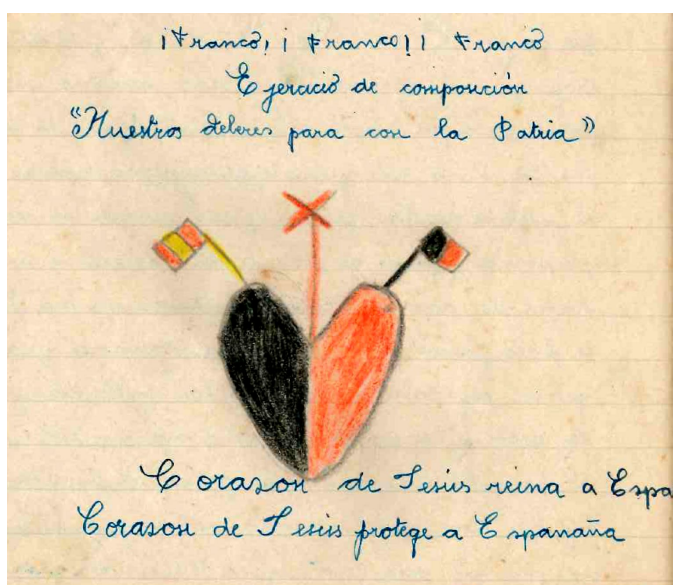 ¡Franco, ¡ Franco! ¡ Franco
Ejercicio de composición
"Nuestros deberes para con la Patria"
Corason de Jesús reina a Espa
Corason de Jesús protege a Espanaña